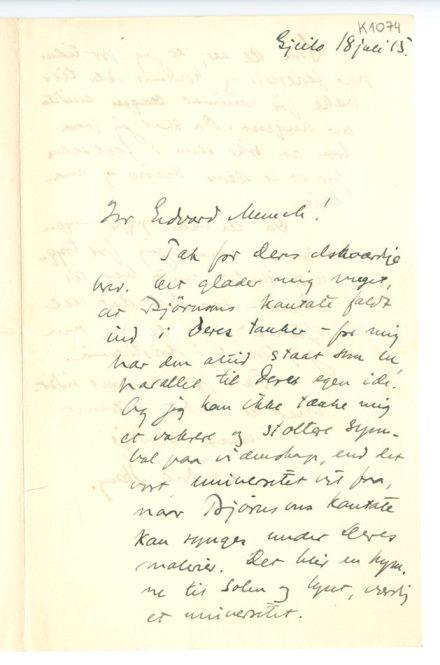 K1074
Gjeilo 18 juli 15.
Hr Eidvard Munch!
Tak for Deres elskværdige
brev. Det glæder mig meget,
at Björnsons Kantate faldt
ind i Deres tanker – for mig
har den altid staat som en
parallel til Deres egen idé.
Og jeg kan ikke tænke mig
et vakrere og stoltere Sym-
bol paa videnskap, end det
vort universitet vil faa,
naar Björnsons Kantate
kan synges under Deres
malerier. Det blir en hym-
ne til Solen og lyset, værdig
et universitet.